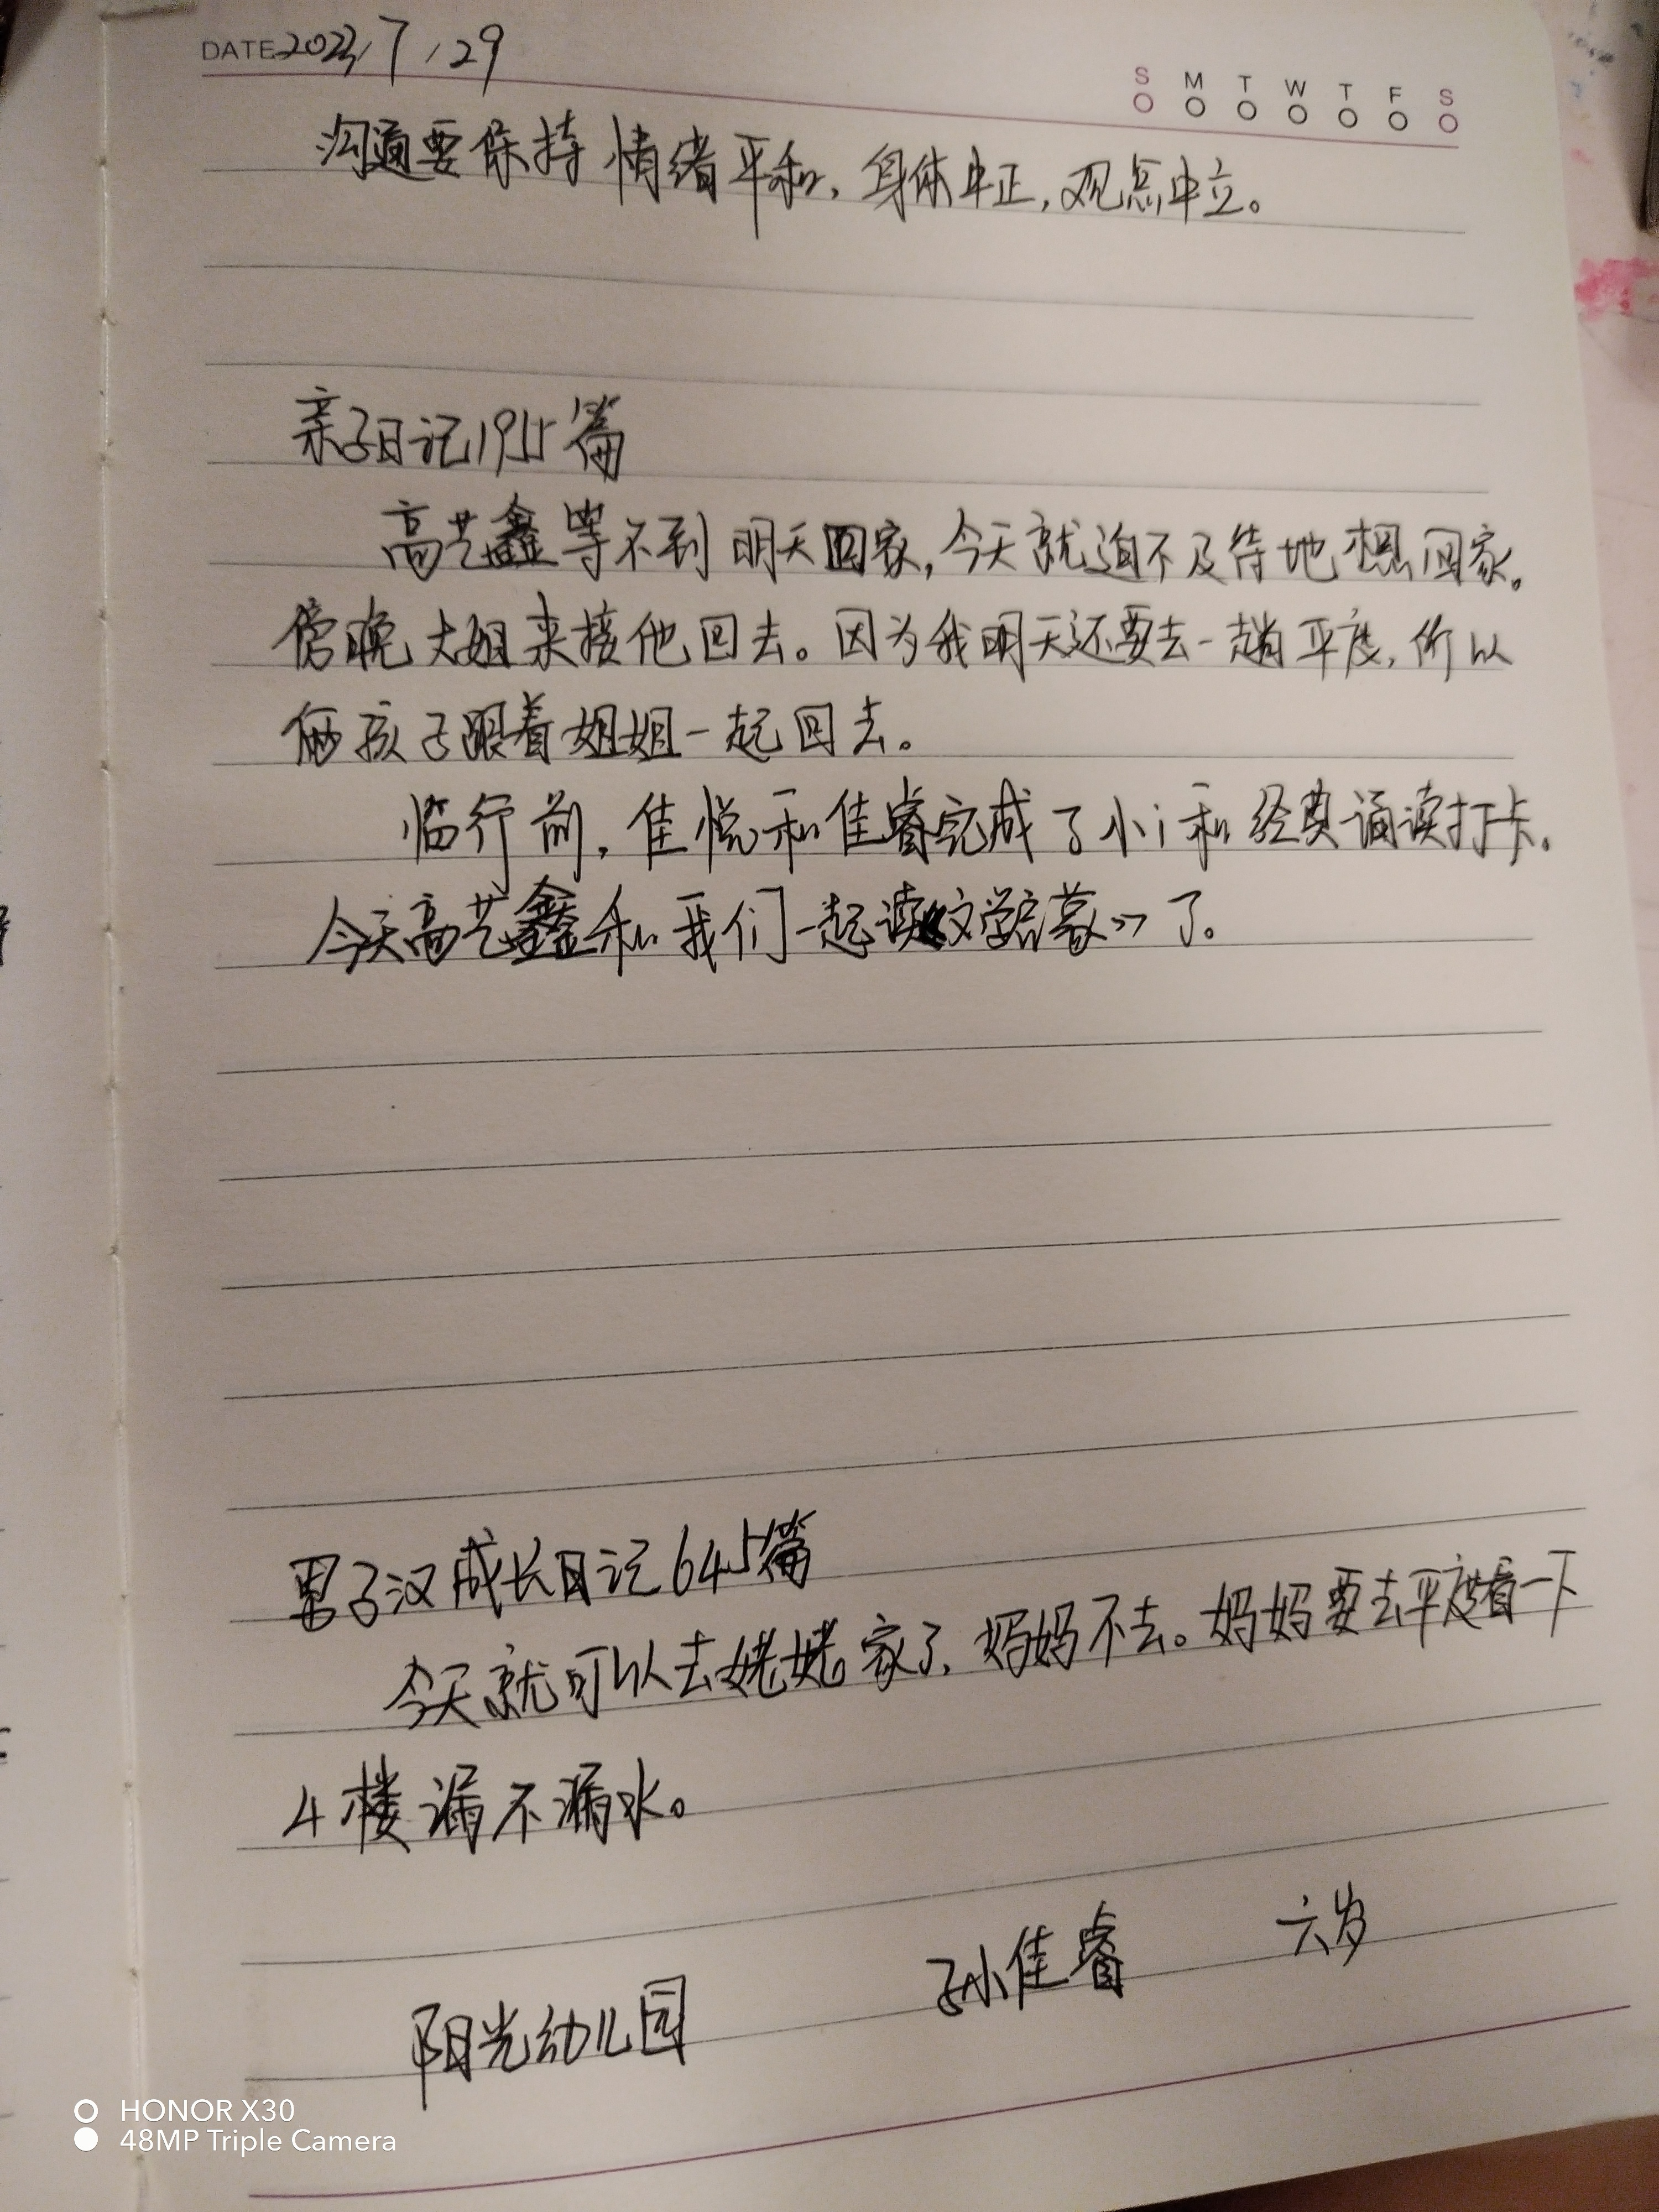 DATE 2023/7/29
S M T W T F S
沟通要保持情绪平和，身体中正，观点中立。
亲子日记1955篇
高艺鑫等不到明天回家，今天就迫不及待地想回家。
傍晚大姐来接他回去。因为我明天还要去一趟平度，所以
俩孩子跟着姐姐一起回去。
临行前，佳悦和佳睿完成了小i和经典诵读打卡。
今天高艺鑫和我们一起读《文学启蒙》了。
男子汉成长日记645篇
今天就可以去姥姥家了，妈妈不去。妈妈要去平度看一下
4楼漏不漏水。
孙佳睿 六岁
阳光幼儿园
HONOR X30
48MP Triple Camera